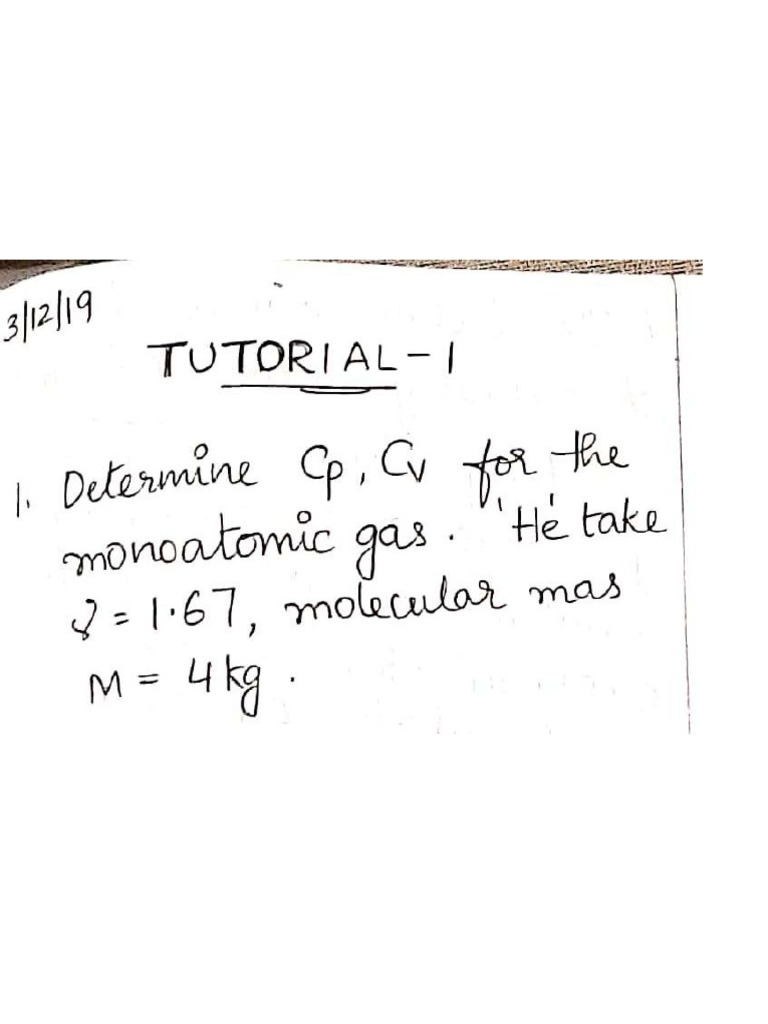 3/12/19
TUTORIAL-1
1. Determine Cp, Cv for the
monoatomic gas. 'He' take
γ = 1.67, molecular mas
M = 4kg.